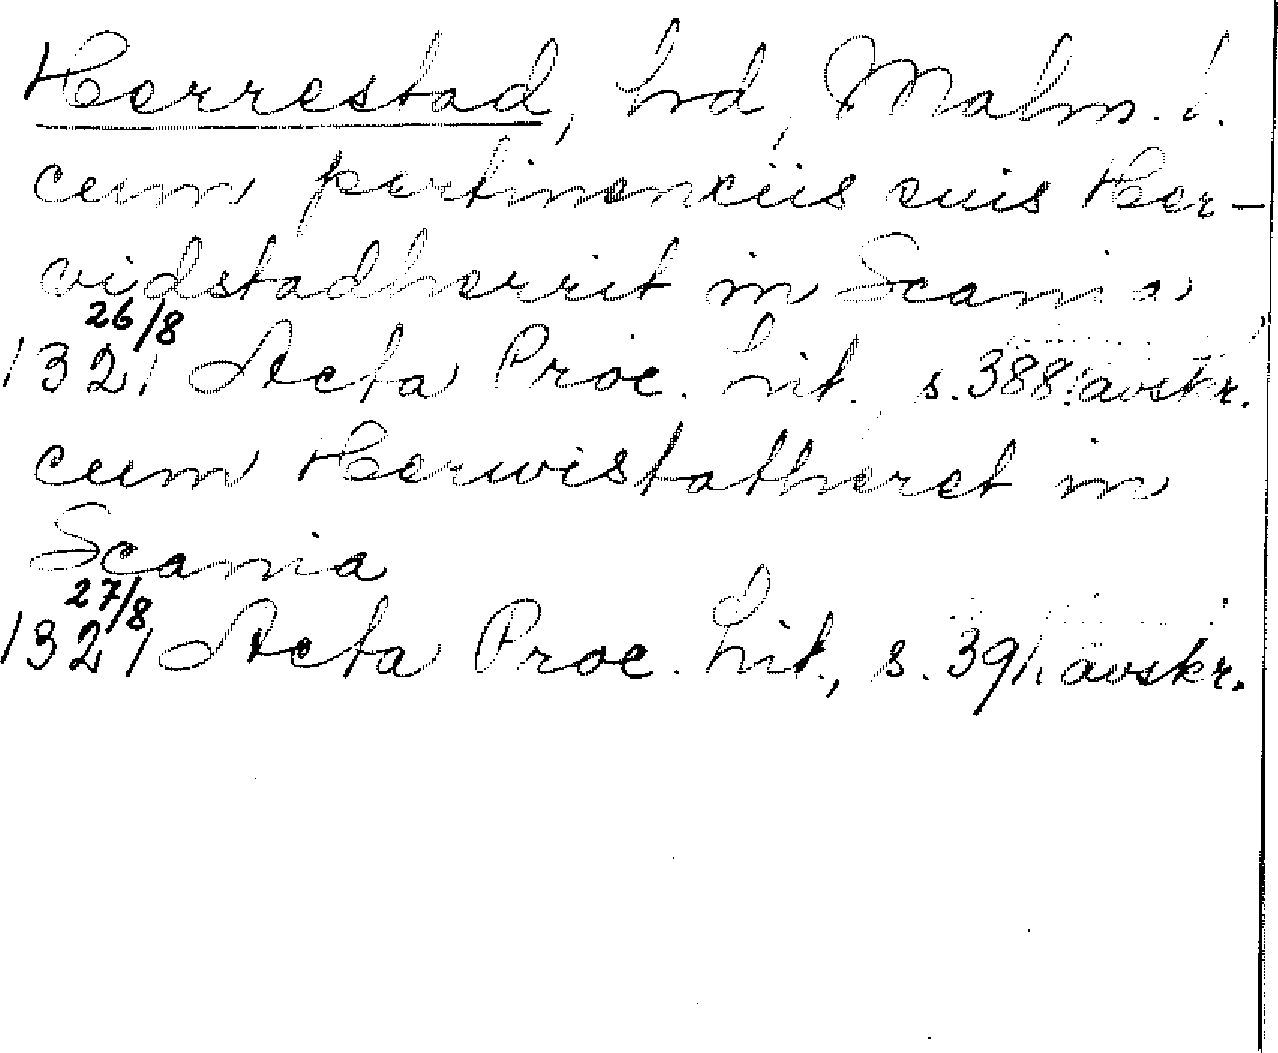 Herrestad, hd, Malm. l.
cum pertinenciis suis Her-
vidstadherrit in Scania
26/8
1321 Acta Proc. Lit. s. 388. avskr.
cum Herwistatheret in
Scania
27/8
1321 Acta Proc. Lit., s. 391. avskr.